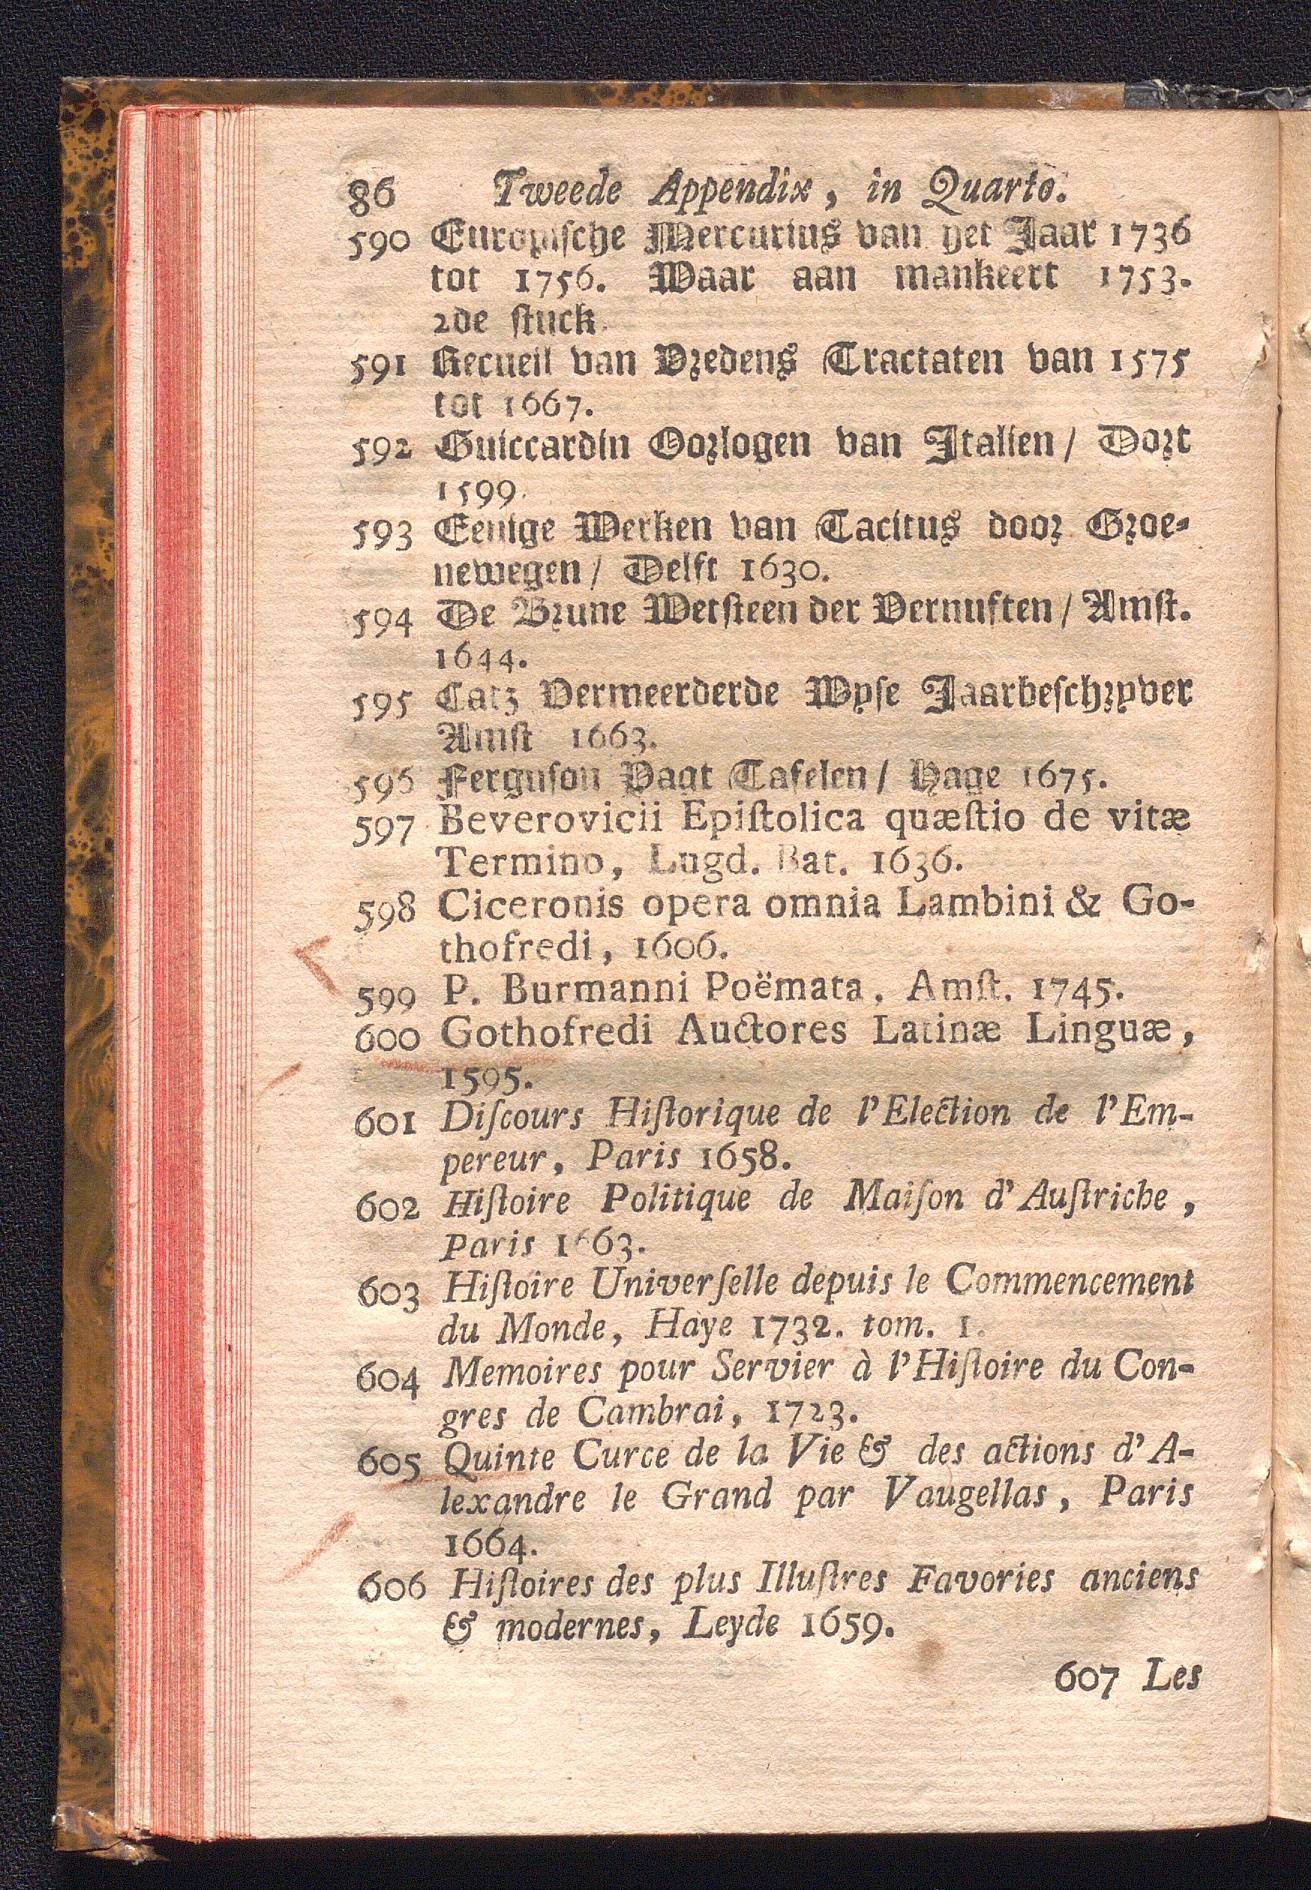 86 Tweede Appendix, in Quarto.
590 Europische Mercurius van het Jaar 1736
tot 1756. Waar aan mankeert 1753.
2de ſtuck.
591 Recueil van Vredens Tractaten van 1575
tot 1667.
592 Guiccardin Oorlogen van Italien / Dort
1599.
593 Eenige Werken van Tacitus door Groe-
newegen / Delft 1630.
594 De Brune Wetſteen der Vernuften / Amſt.
1644.
595 Catz Vermeerderde Wyſe Jaarbeſchryver
Amſt 1663.
596 Ferguſon Tafelen / Hage 1675.
597 Beverovicii Epiſtolica quæſtio de vitæ
Termino, Lugd. Bat. 1636.
598 Ciceronis opera omnia Lambini & Go-
thofredi, 1606.
599 P. Burmanni Poëmata, Amſt. 1745.
600 Gothofredi Auctores Latinæ Linguæ,
1595.
601 Diſcours Hiſtorique de l'Election de l'Em-
pereur, Paris 1658.
602 Hiſtoire Politique de Maiſon d'Auſtriche,
Paris 1663.
603 Hiſtoire Univerſelle depuis le Commencement
du Monde, Haye 1732. tom. 1.
604 Memoires pour Servier à l'Hiſtoire du Con-
gres de Cambrai, 1723.
605 Quinte Curce de la Vie & des actions d'A-
lexandre le Grand par Vaugellas, Paris
1664.
606 Hiſtoires des plus Illuſtres Favories anciens
& modernes, Leyde 1659.
607 Les